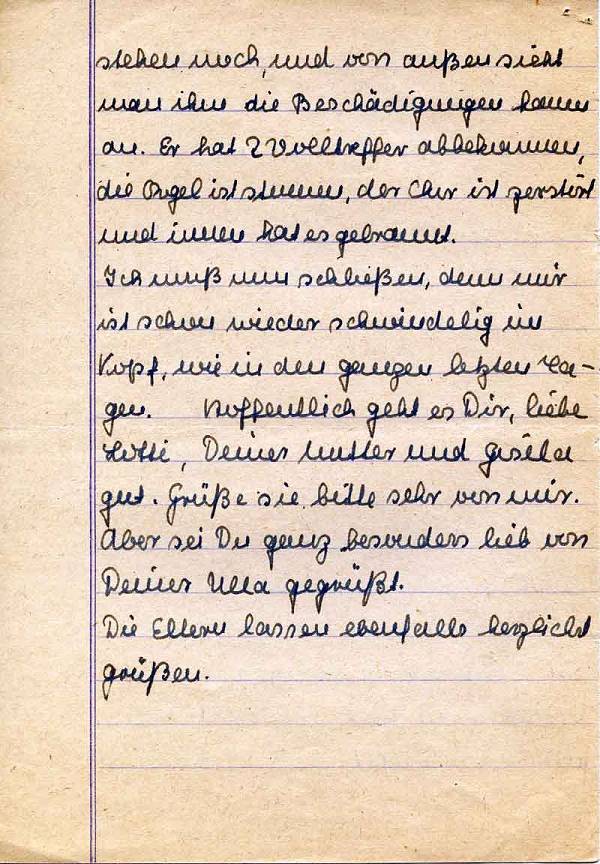 stehen noch, und von außen sieht
man ihm die Beschädigungen kaum
an. Er hat 2 Volltreffer abbekommen,
die Orgel ist stumm, der Chor ist zerstört
und innen hat es gebrannt.
Ich muß nun schließen, denn mir
ist schon wieder schwindelig im
Kopf, wie in den ganzen letzten Ta-
gen. Hoffentlich geht es Dir, liebe
Lotti, Deiner Mutter und Gisela
gut. Grüße sie bitte sehr von mir.
Aber sei Du ganz besonders lieb von
Deiner Ulla gegrüßt.
Die Eltern lassen ebenfalls herzlichst
grüßen.